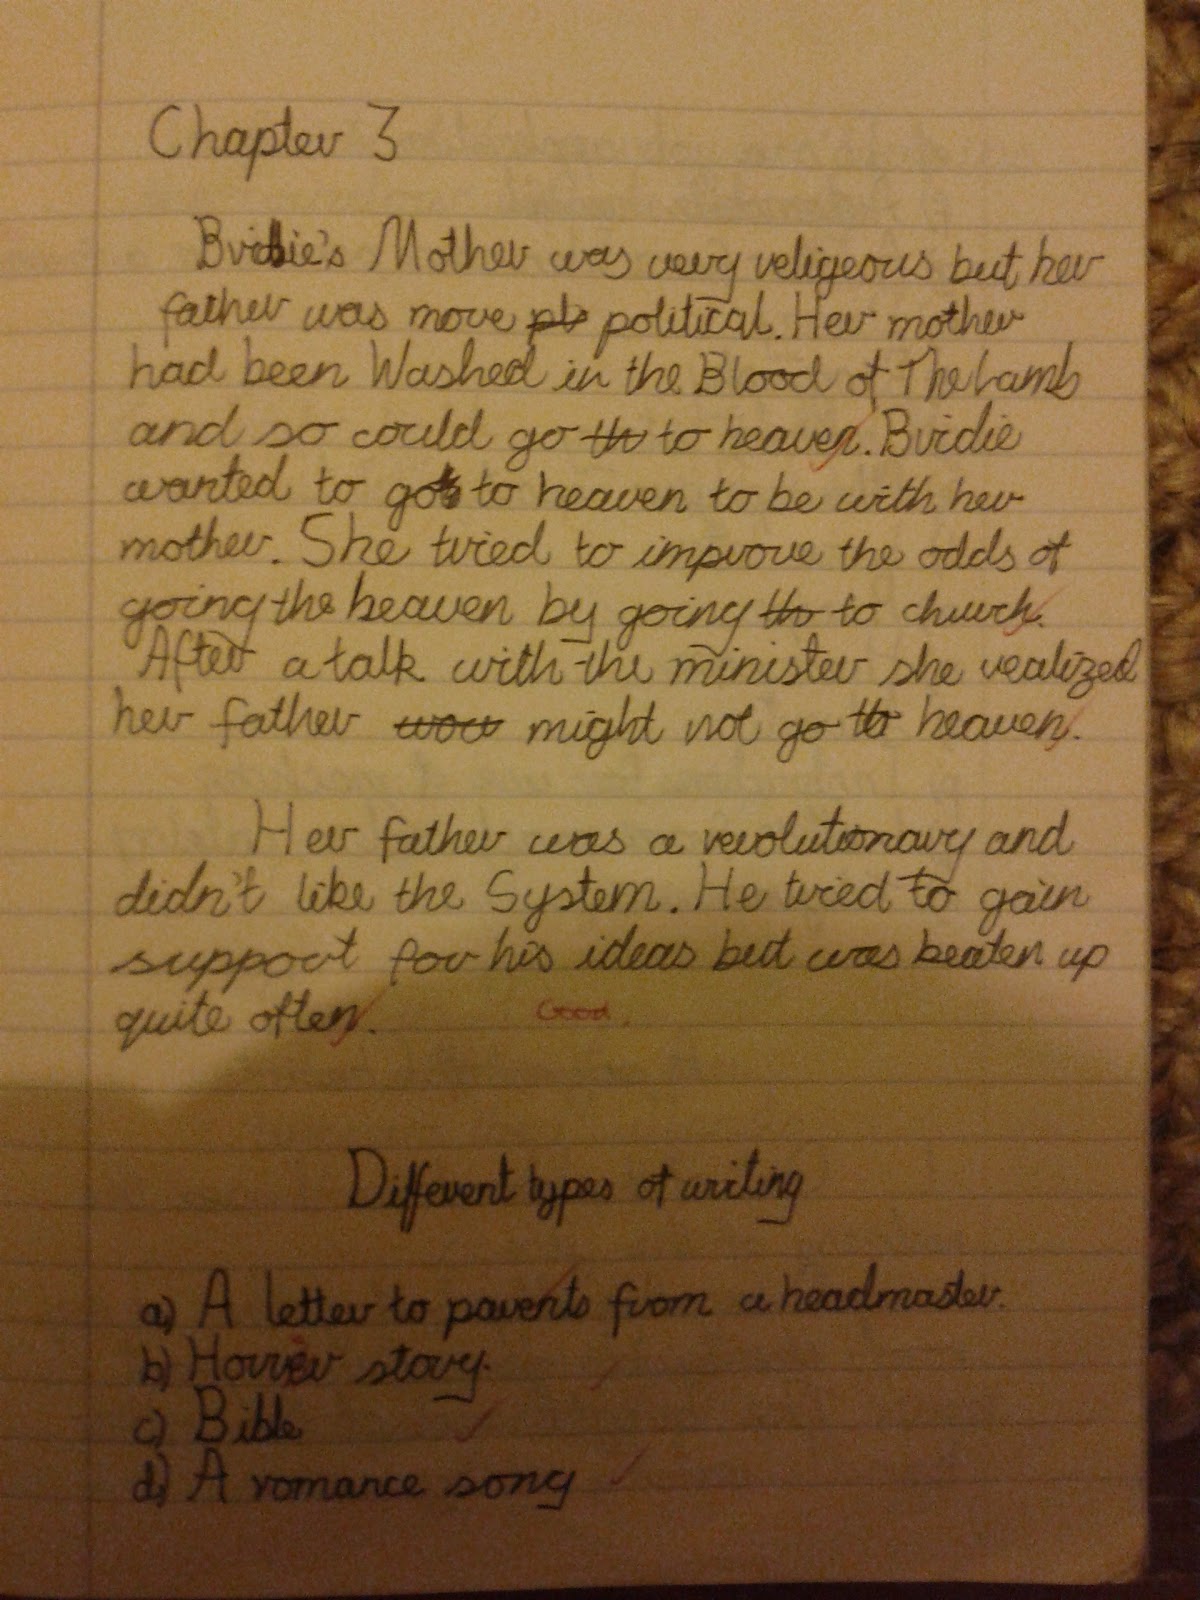 Chapter 3
Birdie's Mother was very religeous but her
father was more pl political. Her mother
had been Washed in the Blood of The Lamb
and so could go th to heaven. Birdie
wanted to go to heaven to be with her
mother. She tried to improve the odds of
going the heaven by going th to church.
After a talk with the minister she realized
her father wou might not go to heaven.
Her father was a revolutionary and
didn't like the System. He tried to gain
support for his ideas but was beaten up
quite often.
Good.
Different types of writing
a) A letter to parents from a headmaster.
b) Horror story.
c) Bible
d) A romance song